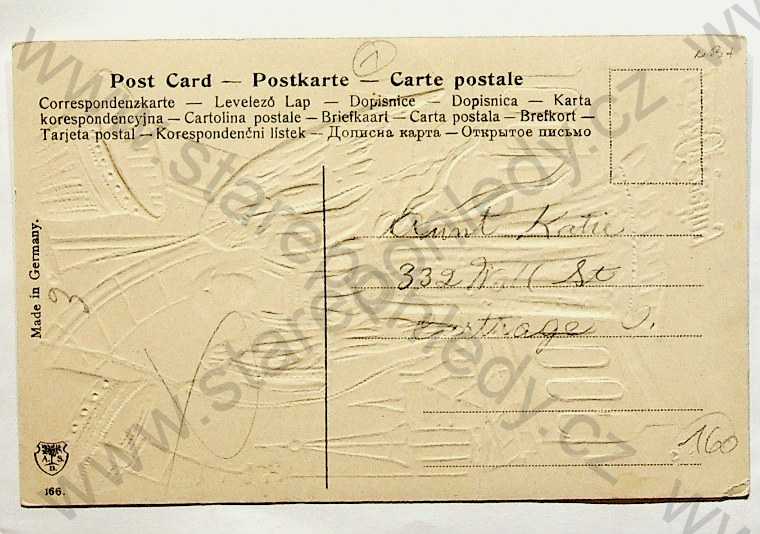 1
Post Card — Postkarte — Carte postale
Correspondenzkarte — Levelező Lap — Dopisnice — Dopisnica — Karta
korespondencyjna — Cartolina postale — Briefkaart — Carta postala — Brefkort —
Tarjeta postal — Korespondenčni lístek — Дописна карта — Открытое письмо
Made in Germany.
3
Aunt Katie
332 Wall St
O.
160
A. S.
B.
166.
www.starepohledy.cz
www.starepohledy.cz